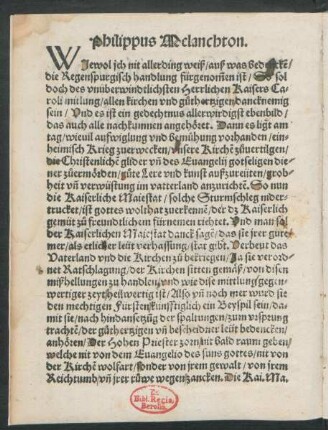 Philippus Melanchton.
Wiewol jch nit allerding weiß/auß was
die Regenspurgisch handlung fürgenom̃en ist/ So sol
doch des vnüberwindtlichsten Herrlichen Kaisers Ca-
roli mitlung/allen kirchen vnd gůthertzigen dancknemig
sein / Vnd es ist ein gedechtnus allerwirdigst ebenbild/
das auch alle nachkum̃en angehöret. Dann es ligt am
tag/ weueil auffwiglung vnd Bemühung vorhanden/ ein-
heimisch Krieg zuerwecken/vnsere Kirchẽ zůuertilgen/
die Christenliche glider vñ des Euangelij gotseligen die-
ner zůermörden/gůte Lere vnd kunst außzureüten/grob-
heit vñ verwüstung im vatterland anzurichtẽ. So nun
die Kaiserliche Maiestat / solche Sturmschleg nider-
trucket/ist gottes wolthat zuerkennẽ/der dz Kaiserlich
gemüt zů freundtlichem fürnemen triebet. Vnd man sol
der Kaiserlichen Maiestat danck sagẽ/das sie jrer güte
mer/als etlicher leüt verhassung/stat gibt. Verheut das
Vaterland vnd die Kirchen zů bekriegen/Ja sie verord-
net Ratschlagung/der Kirchen sitten gemäß/von disen
mißhellungen zů handlen/vnd wie dise mitlung gegen-
wertiger zeyt heilwertig ist/Also vil noch mer wurd sie
den mechtigen Fürsten künfftiglich ein Beyspil sein/da-
mit sie/nach hindansetzüg der spaltungen/zum vrsprung
trachtẽ/der gůthertzigen vñ bescheidner leüt bedencken/
anhören/ Der Hohen Priester zorn nit bald raum geben/
welche nit von dem Euangelio des suns gottes/nit von
der Kirchẽ wolfart/sonder von jrem gewalt/von jrem
Reichtumb/vñ jrer růwe wegen zancken. Die Kai. Ma.
Ex
Bibl. Regia
Berolin.